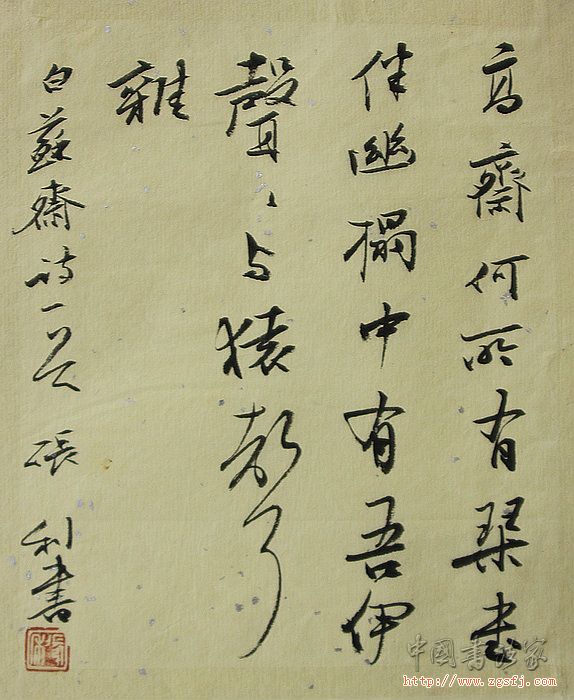 高齋何所有琹書
伴幽榻中有吾伊
聲〻与猿鶴
雜
白蘇齋詩一首 張利書
中國書法家
http://www.zgsfj.com